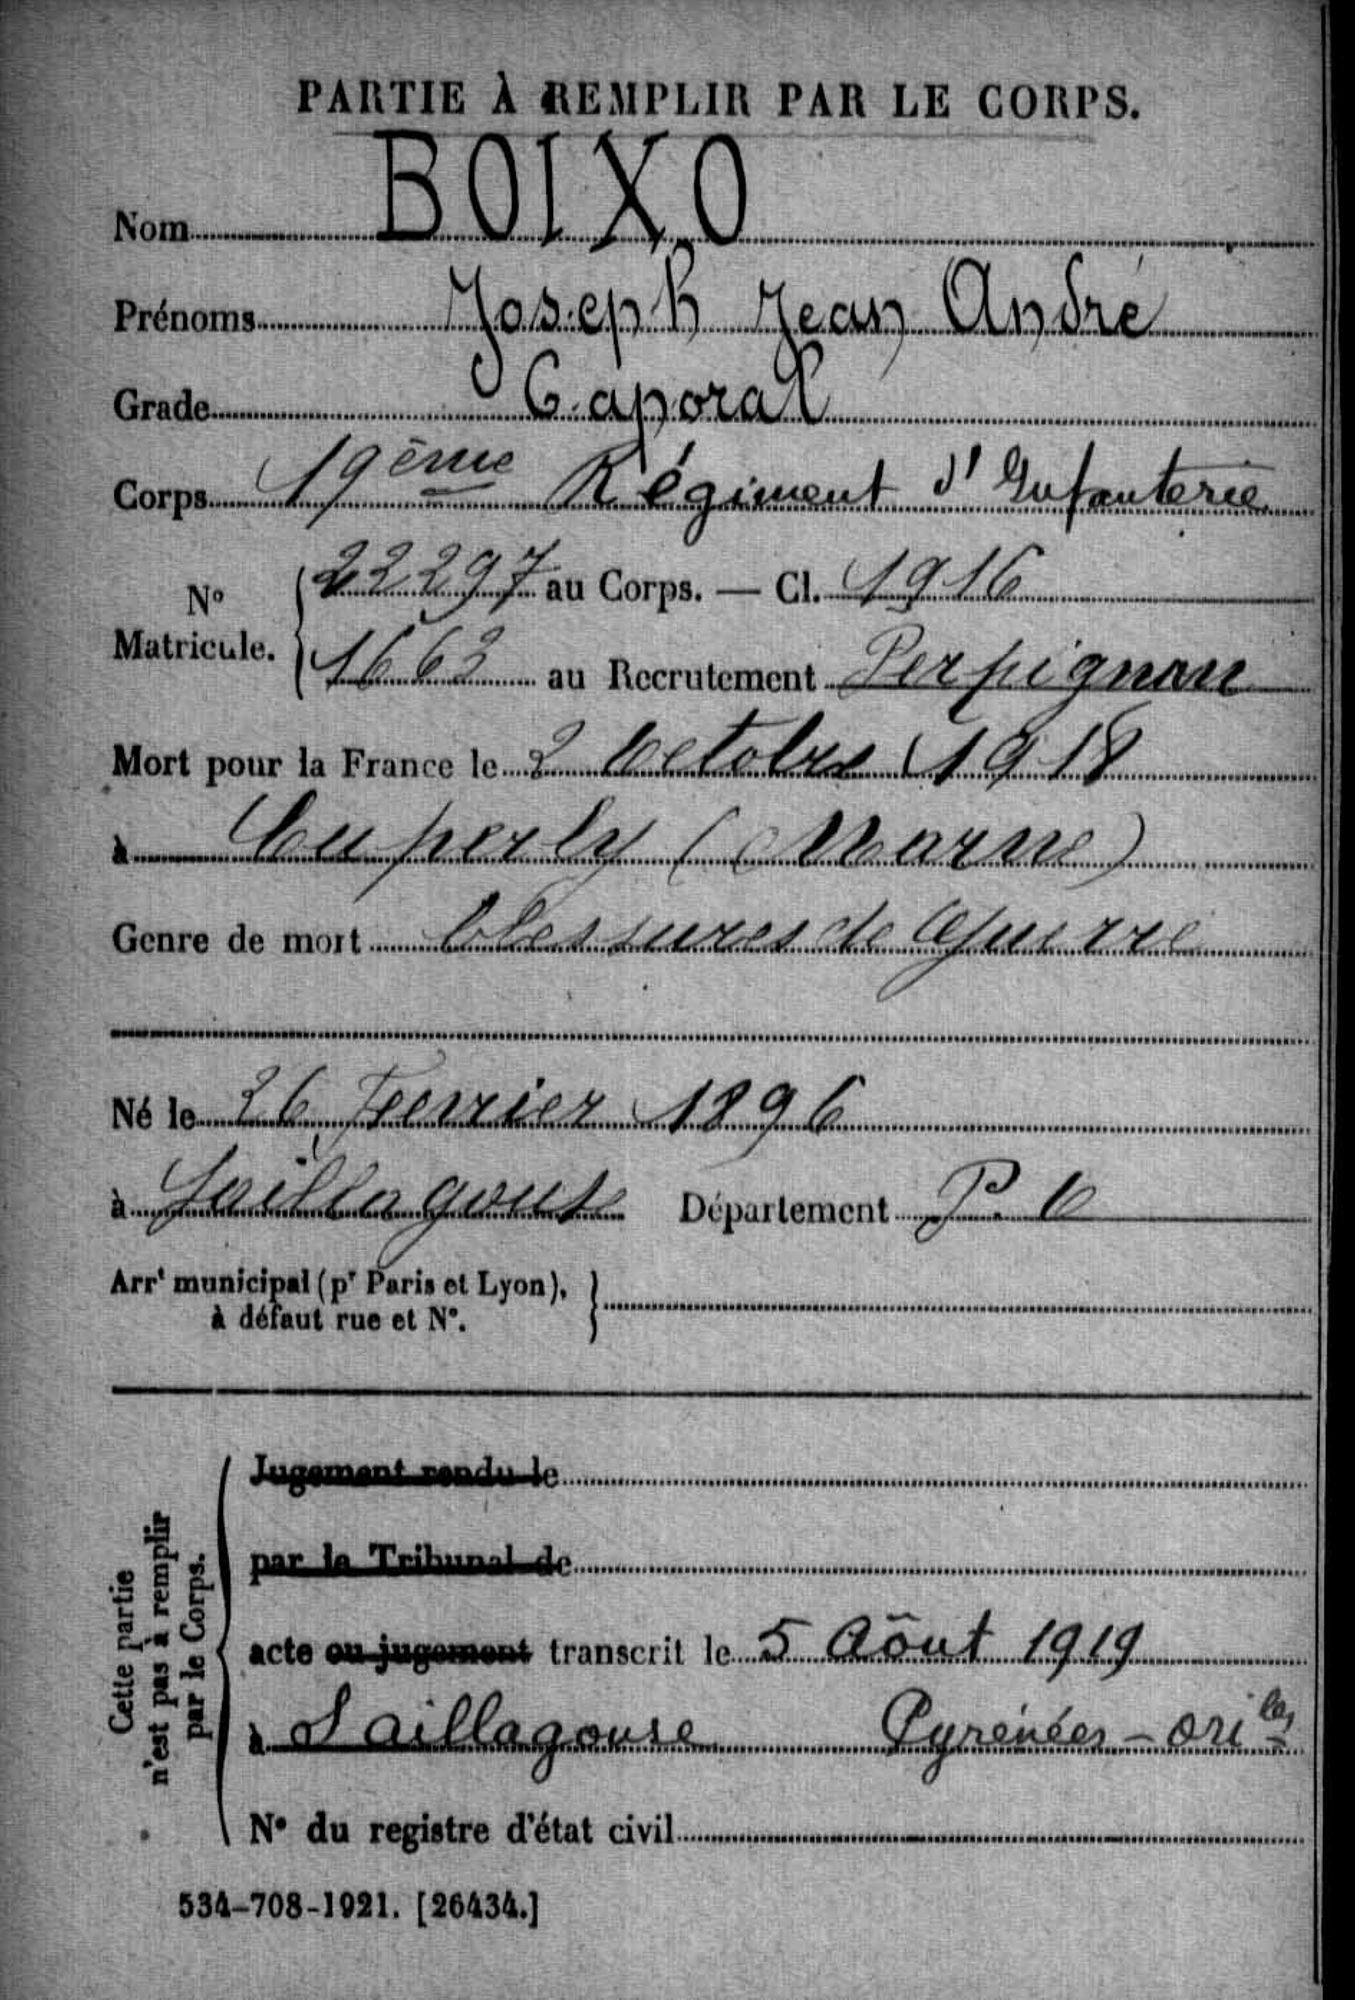 PARTIE À REMPLIR PAR LE CORPS.
Nom BOIXO
Prénoms Joseph Jean André
Grade Caporal
Corps 19ème Régiment d'Infanterie
N° Matricule. 22297 au Corps. — Cl. 1916
1662 au Recrutement Perpignan
Mort pour la France le 2 Octobre 1918
à Cuperly (Marne)
Genre de mort blessures de Guerre
Né le 26 Fevrier 1896
à Saillagouse Département P. O
Arrt municipal (pr Paris et Lyon),
à défaut rue et N°.
Cette partie
n'est pas à remplir
par le Corps.
Jugement rendu le
par le Tribunal de
acte ou jugement transcrit le 5 Aôut 1919
à Saillagouse Pyrénées-Oriles
N° du registre d'état civil
534-708-1921. [26434.]